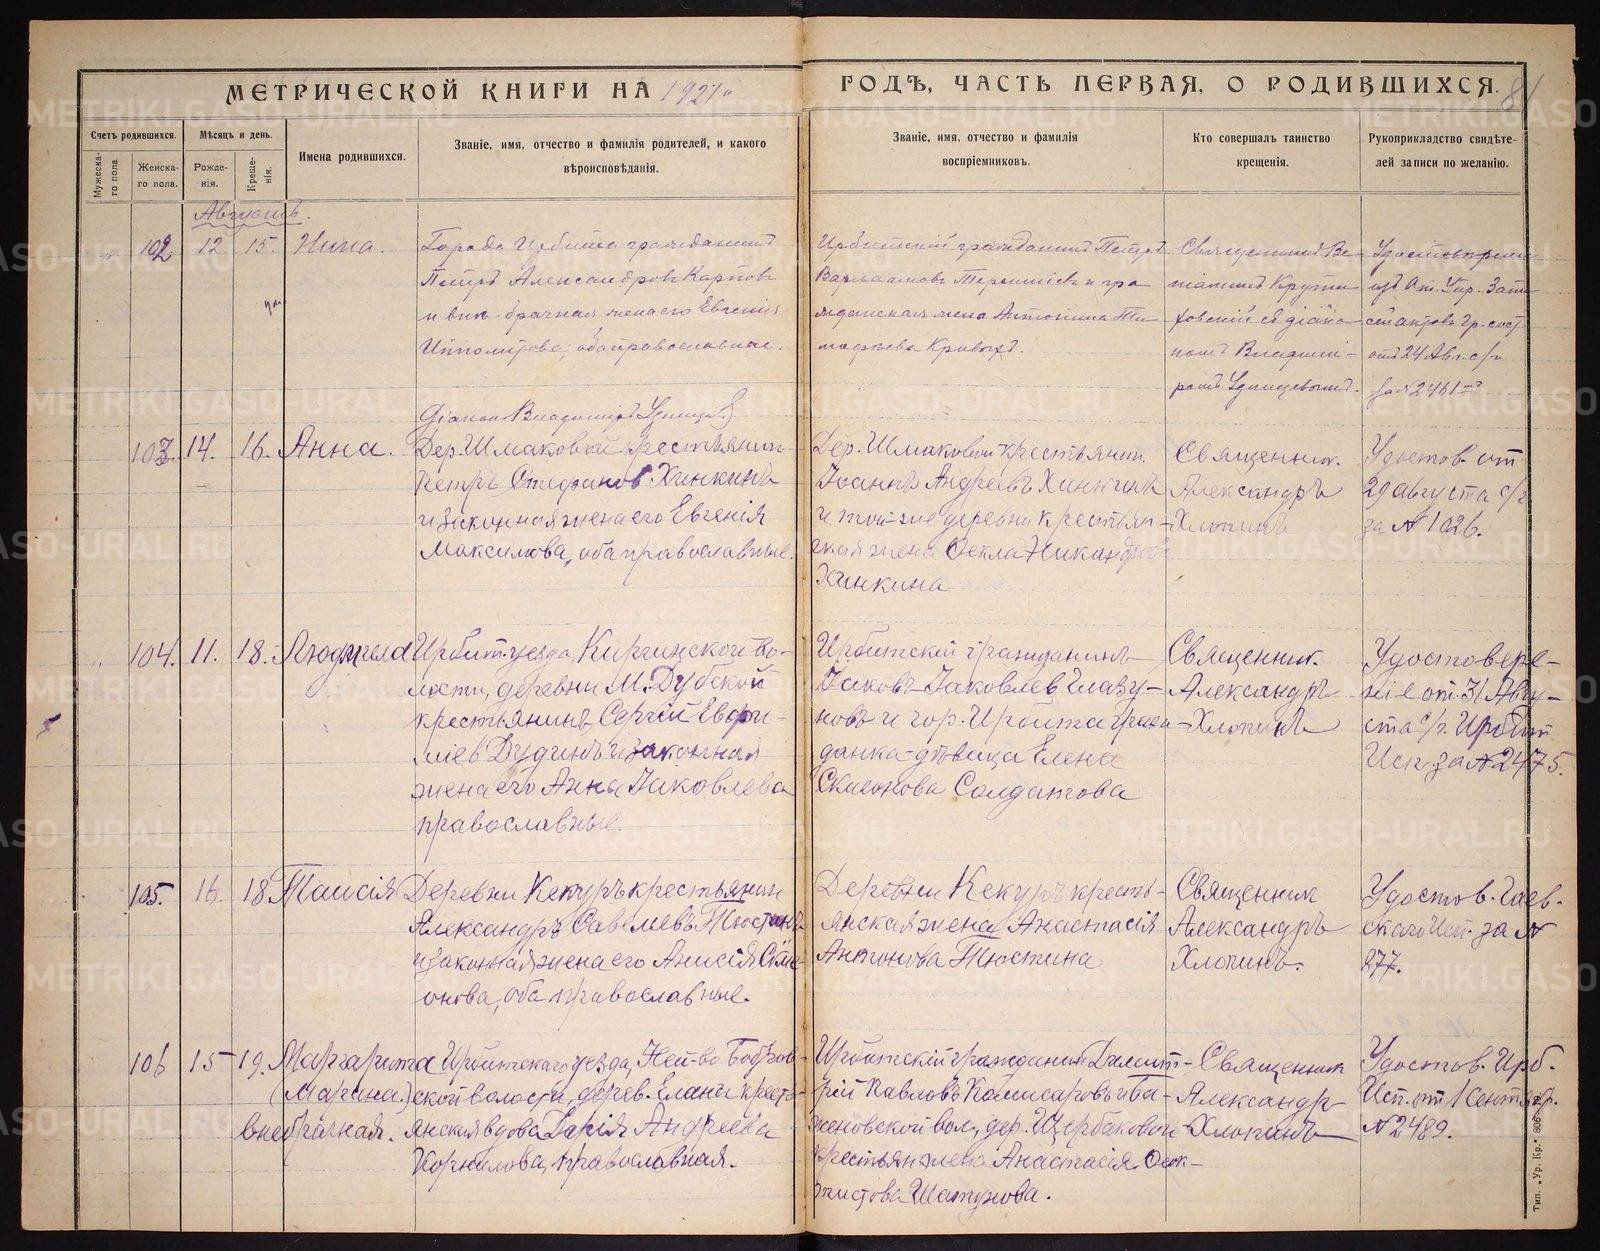 МЕТРИЧЕСКОЙ КНИГИ НА 1921
ГОДЪ, ЧАСТЬ ПЕРВАЯ, О РОДИВШИХСЯ. 81
Счетъ родившихся.
Мужеска-
го пола
Женска-
го пола.
Мѣсяцъ и день.
Рожде-
нія.
Креще-
нія.
Имена родившихся.
Званіе, имя, отчество и фамилія родителей, и какого
вѣроисповѣданія.
Званіе, имя, отчество и фамилія
воспріемниковъ.
Кто совершалъ таинство
крещенія.
Рукоприкладство свидѣте-
лей записи по желанію.
Августъ.
102 12 15. Нина.
Города Ирбита гражданинъ
Петръ Александровъ Карповъ
и внѣ брачная жена его Евгенія
Ипполитова; оба православные.
Діаконъ Владиміръ
Ирбитскій гражданинъ Петръ
Варлаамовъ и гра
жданская жена Антонина Ти
мофѣева
Священникъ Ве
ніаминъ Крути
ховскій съ діако
номъ Владимі-
ромъ
отъ 24 Авг. с/г
за № 2461
103. 14. 16. Анна.
Дер. Шмаковой крестьянин
Петръ Стефановъ Хинкинъ
и законная жена его Евгенія
Максимова, оба православные.
Дер. Шмаковой крестьянин.
Іоаннъ Андреевъ Хинкинъ
и той-же деревни крестьян-
ская жена Фекла Никандрова
Хинкина
Священник.
Александръ
Хлопинъ
Удостов. от
29 августа с/г
за № 1026.
104. 11. 18. Людмила
Ирбит. уезда, Киргинской во-
лости, деревни М. Дубской
крестьянинъ Сергій Евфи-
міев Дудинъ и законная
жена его Анна Іаковлева
православные.
Ирбитскій гражданинъ
Іаковъ Іаковлев Глазу-
новъ и гор. Ирбита граж
данка-дѣвица Елена
Симеонова Солдатова
Священник.
Александръ
Хлопинъ
Удостовере-
ніе от. 31 Авгу-
ста с/г. Ирбит
Исп за № 2475.
105. 16. 18 Таисія
Деревни Кекуръ крестьянин
Александръ Савелиевъ Тюстинъ
и законная жена его Анисія Симе-
онова, оба православные.
Деревни Кекуръ кресть-
янская жена Анастасія
Антонова Тюстина
Священник
Александръ
Хлопинъ.
Удостов. Гаев-
скаго Исп. за №
877.
106 15 19. Маргарита
(Марина.)
внебрачная.
Ирбитскаго уезда, Нейво
ской волости, дерев. Елани кресть-
янская вдова Дарія Андреева
Корнилова, православная.
Ирбитскій гражданин Димит-
рій Павловъ Комисаровъ и ба-
женовской вол., дер. Щербаковой
крестьян жена Анастасія
Шатунова.
Священник
Александръ
Хлопинъ
Удостов. Ирб.
Исп. от 1 Сентяб.
№ 2489.
Тип. „Ур. Кр."
METRIKI.GASO-URAL.RU